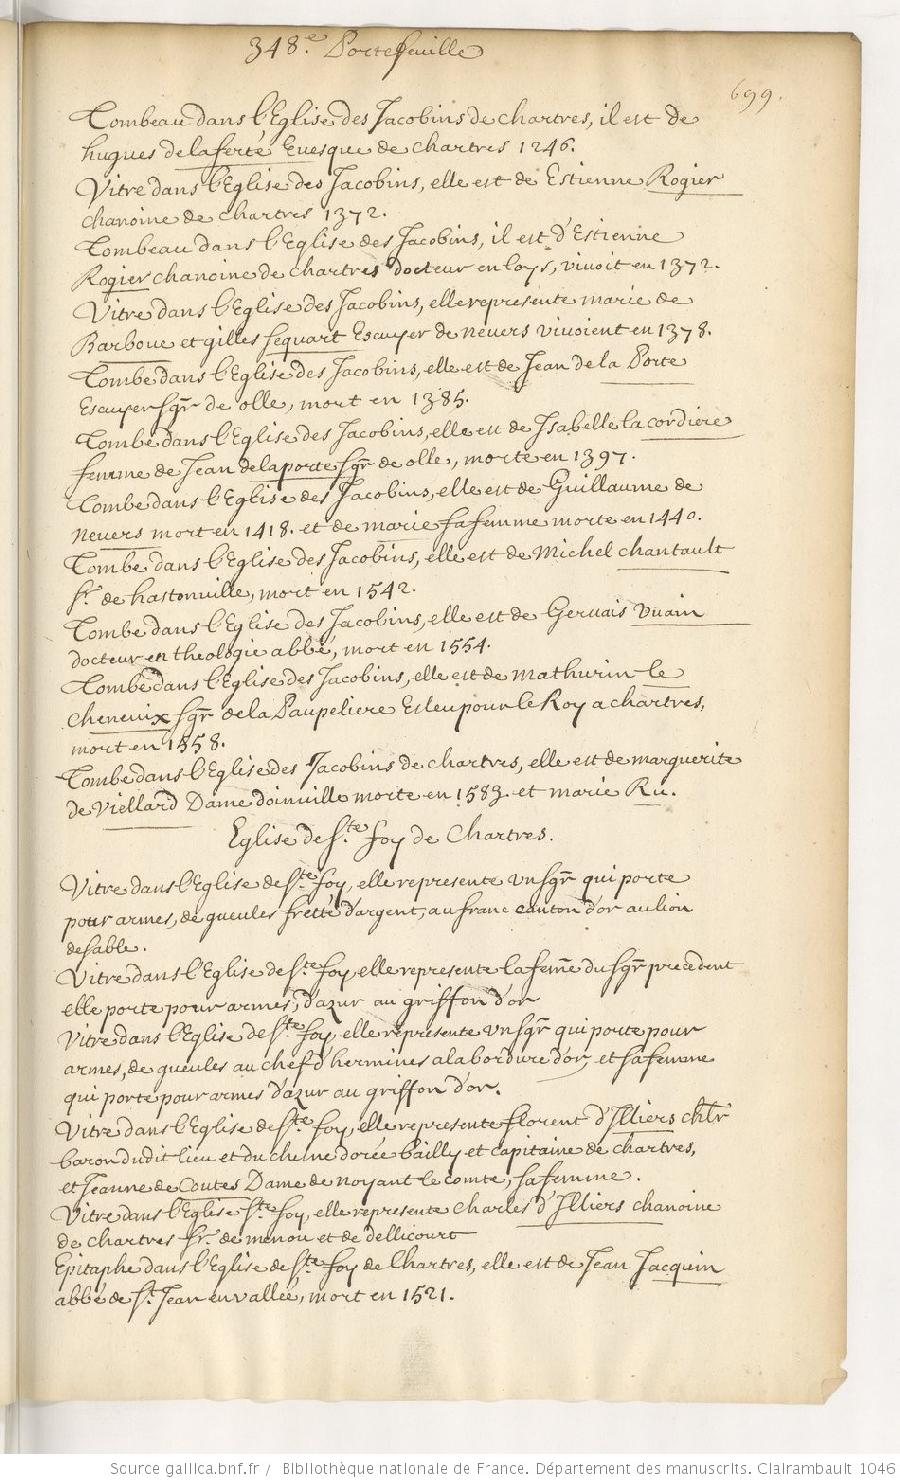 348.e Portefeuille
699.
Tombeau dans l'Eglise des Jacobins de chartres, il est de
hugues de laferté Euesque de chartres 1246.
Vitre dans l'Eglise des Jacobins, elle est de Estienne Rogier
chanoine de chartres 1372.
Tombeau dans l'Eglise des Jacobins, il est d'Estienne
Rogier chanoine de chartres docteur en loys, vivoit en 1372.
Vitre dans l'Eglise des Jacobins, elle represente marie de
Barboue et gilles sequart Escuyer de nevers vivoient en 1378.
Tombe dans l'Eglise des Jacobins, elle est de Jean de la Porte
Escuyer sgr de olle, mort en 1385.
Tombe dans l'Eglise des Jacobins, elle est de Isabelle la cordiere
femme de Jean de la porte sgr de olle, morte en 1397.
Tombe dans l'Eglise des Jacobins, elle est de Guillaume de
nevers mort en 1418. et de marie sa femme morte en 1440.
Tombe dans l'Eglise des Jacobins, elle est de Michel chantault
sr. de hastonville, mort en 1542.
Tombe dans l'Eglise des Jacobins, elle est de Gervais vuain
docteur en theologie abbé, mort en 1554.
Tombe dans l'Eglise des Jacobins, elle est de mathurin le
chenevix sgr de la Paupeliere Esleu pour le Roy a chartres,
mort en 1558.
Tombe dans l'Eglise des Jacobins de chartres, elle est de marguerite
de Viellard Dame doinville morte en 1583. et marie Ru.
Eglise de ste. foy de Chartres.
Vitre dans l'Eglise de ste foy, elle represente vn sgr qui porte
pour armes, de gueules fretté d'argent, au franc canton d'or au lion
de sable.
Vitre dans l'Eglise de ste foy, elle represente la feme du sgr precedent
elle porte pour armes, d'azur au griffon d'or
Vitre dans l'Eglise de ste foy, elle represente vn sgr qui porte pour
armes, de gueules au chef d'hermines a la bordure d'or, et sa femme
qui porte pour armes d'azur au griffon d'or.
Vitre dans l'Eglise de ste foy, elle represente florent d'Illiers chlr
baron dudit lieu et du chemedorée bailly et capitaine de chartres,
et Jeanne de Coutes Dame de noyant le comte, sa femme.
Vitre dans l'Eglise ste foy, elle represente Charles d'Illiers chanoine
de chartres sr. de menou et de dellicourt
Epitaphe dans l'Eglise de ste foy de Chartres, elle est de Jean Jacquin
abbé de st Jean en vallée, mort en 1521.
Source gallica.bnf.fr / Bibliothèque nationale de France. Département des manuscrits. Clairambault 1046